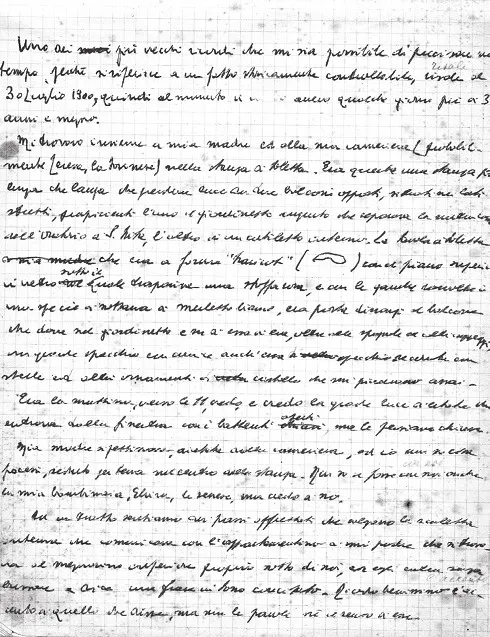 Uno dei più vecchi ricordi che mi sia possibile di precisare nel
tempo, perché si riferisce a un fatto storicamente controllabile, risale al
30 Luglio 1900, quindi al momento in avevo qualche giorno più di 3
anni e mezzo.
Mi trovavo insieme a mia madre ed alla sua cameriera (probabil-
mente Teresa, la torinese) nella stanza di toletta. Era questa una stanza più
lunga che larga che prendeva luce da due balconi opposti, situati nei lati
stretti, prospicienti l'uno il giardinetto angusto che separava la nostra casa
dall'Oratorio di S. Zita, l'altro in un cortiletto interno. La tavola di toletta
che era a forma "haricot" ( ) con il piano superiore
in vetro sotto il quale traspariva una stoffa rosa, e con le gambe avvolte in
una specie di sottana di merletto bianco, era posta dinanzi al balcone
che dava nel giardinetto e su di essa vi era, oltre alle spazzole ed altri
un grande specchio con cornice anch'essa a specchio decorata con
stelle ed altri ornamenti di cristallo che mi piacevano assai.
Era la mattina, verso le 11, credo, e vedo la grande luce di estate che
entrava dalla finestra con i battenti aperti, ma le persiane chiuse.
Mia madre si pettinava, aiutata dalla cameriera, ed io non so cosa
facessi, seduto per terra nel centro della stanza. Non so se fosse con noi anche
la mia bambinaia, Elvira, la senese, ma credo di no.
Ad un tratto sentiamo dei passi affrettati che salgono la scaletta
interna che comunicava con l'appartamentino di mio padre che si trova-
va al mezzanino inferiore proprio sotto di noi, ed egli entra senza
bussare e dice una frase in tono concitato. Ricordo benissimo l'ac-
cento di quelli che disse, ma non le parole né il senso di esse.